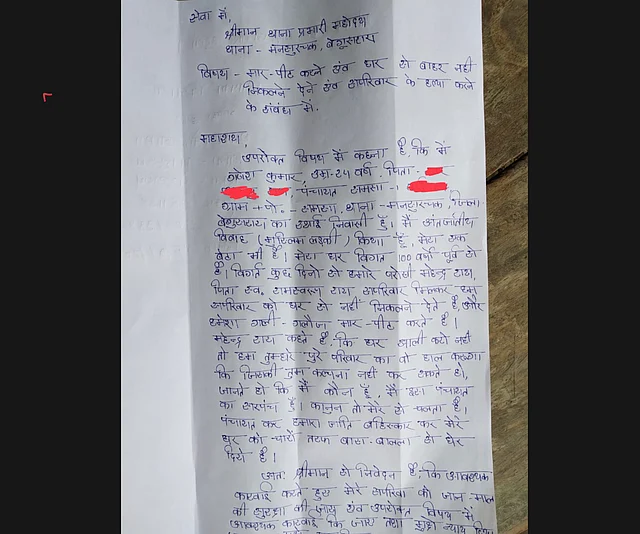 सेवा में,
श्रीमान थाना प्रभारी महोदय
थाना - मनसुरचक, बेगुसराय
विषय - मार-पीट करने एंव घर से बाहर नहीं
निकलने देने एंव सपरिवार के हत्या करने
के संबंध में.
महाशय,
उपरोक्त विषय में कहना है, कि मैं
कुमार, उम्र-24 वर्ष, पिता-
पंचायत समसा -
ग्राम + पो. - समसा, थाना - मनसुरचक, जिला
बेगुसराय का स्थाई निवासी हूँ। मैं अंतर्जातीय
विवाह (मुस्लिम लड़की) किया हूँ, मेरा एक
बेटा भी है। मेरा घर विगत 100 वर्षो पूर्व से
है। विगत कुछ दिनो से हमारे परोसी महेन्द्र राय,
पिता स्व. रामस्वरूप राय सपरिवार मिलकर हम
सपरिवार को घर से नहीं निकलने देते हैं, और
हमेशा गाली-गलौज मार-पीट करते हैं।
महेन्द्र राय कहते हैं, कि घर खाली करो नहीं
तो हम तुम्हारे पुरे परिवार का वो हाल करूंगा
कि जिसकी तुम कल्पना नहीं कर सकते हो,
जानते हो कि मैं कौन हूँ, मैं इस पंचायत
का सरपंच हूँ। कानुन तो मेरे से चलता है।
पंचायत कर हमारा जाति बहिस्कार कर मेरे
घर को चारों तरफ बास-बल्ला से घेर
दिये हैं।
अतः श्रीमान से निवेदन है, कि आवश्यक
कारवाई करते हुए मेरे सपरिवार को जान माल
की सुरक्षा की जाय एंव उपरोक्त विषय में
आवश्यक कारवाई कि जाए तथा मुझे न्याय